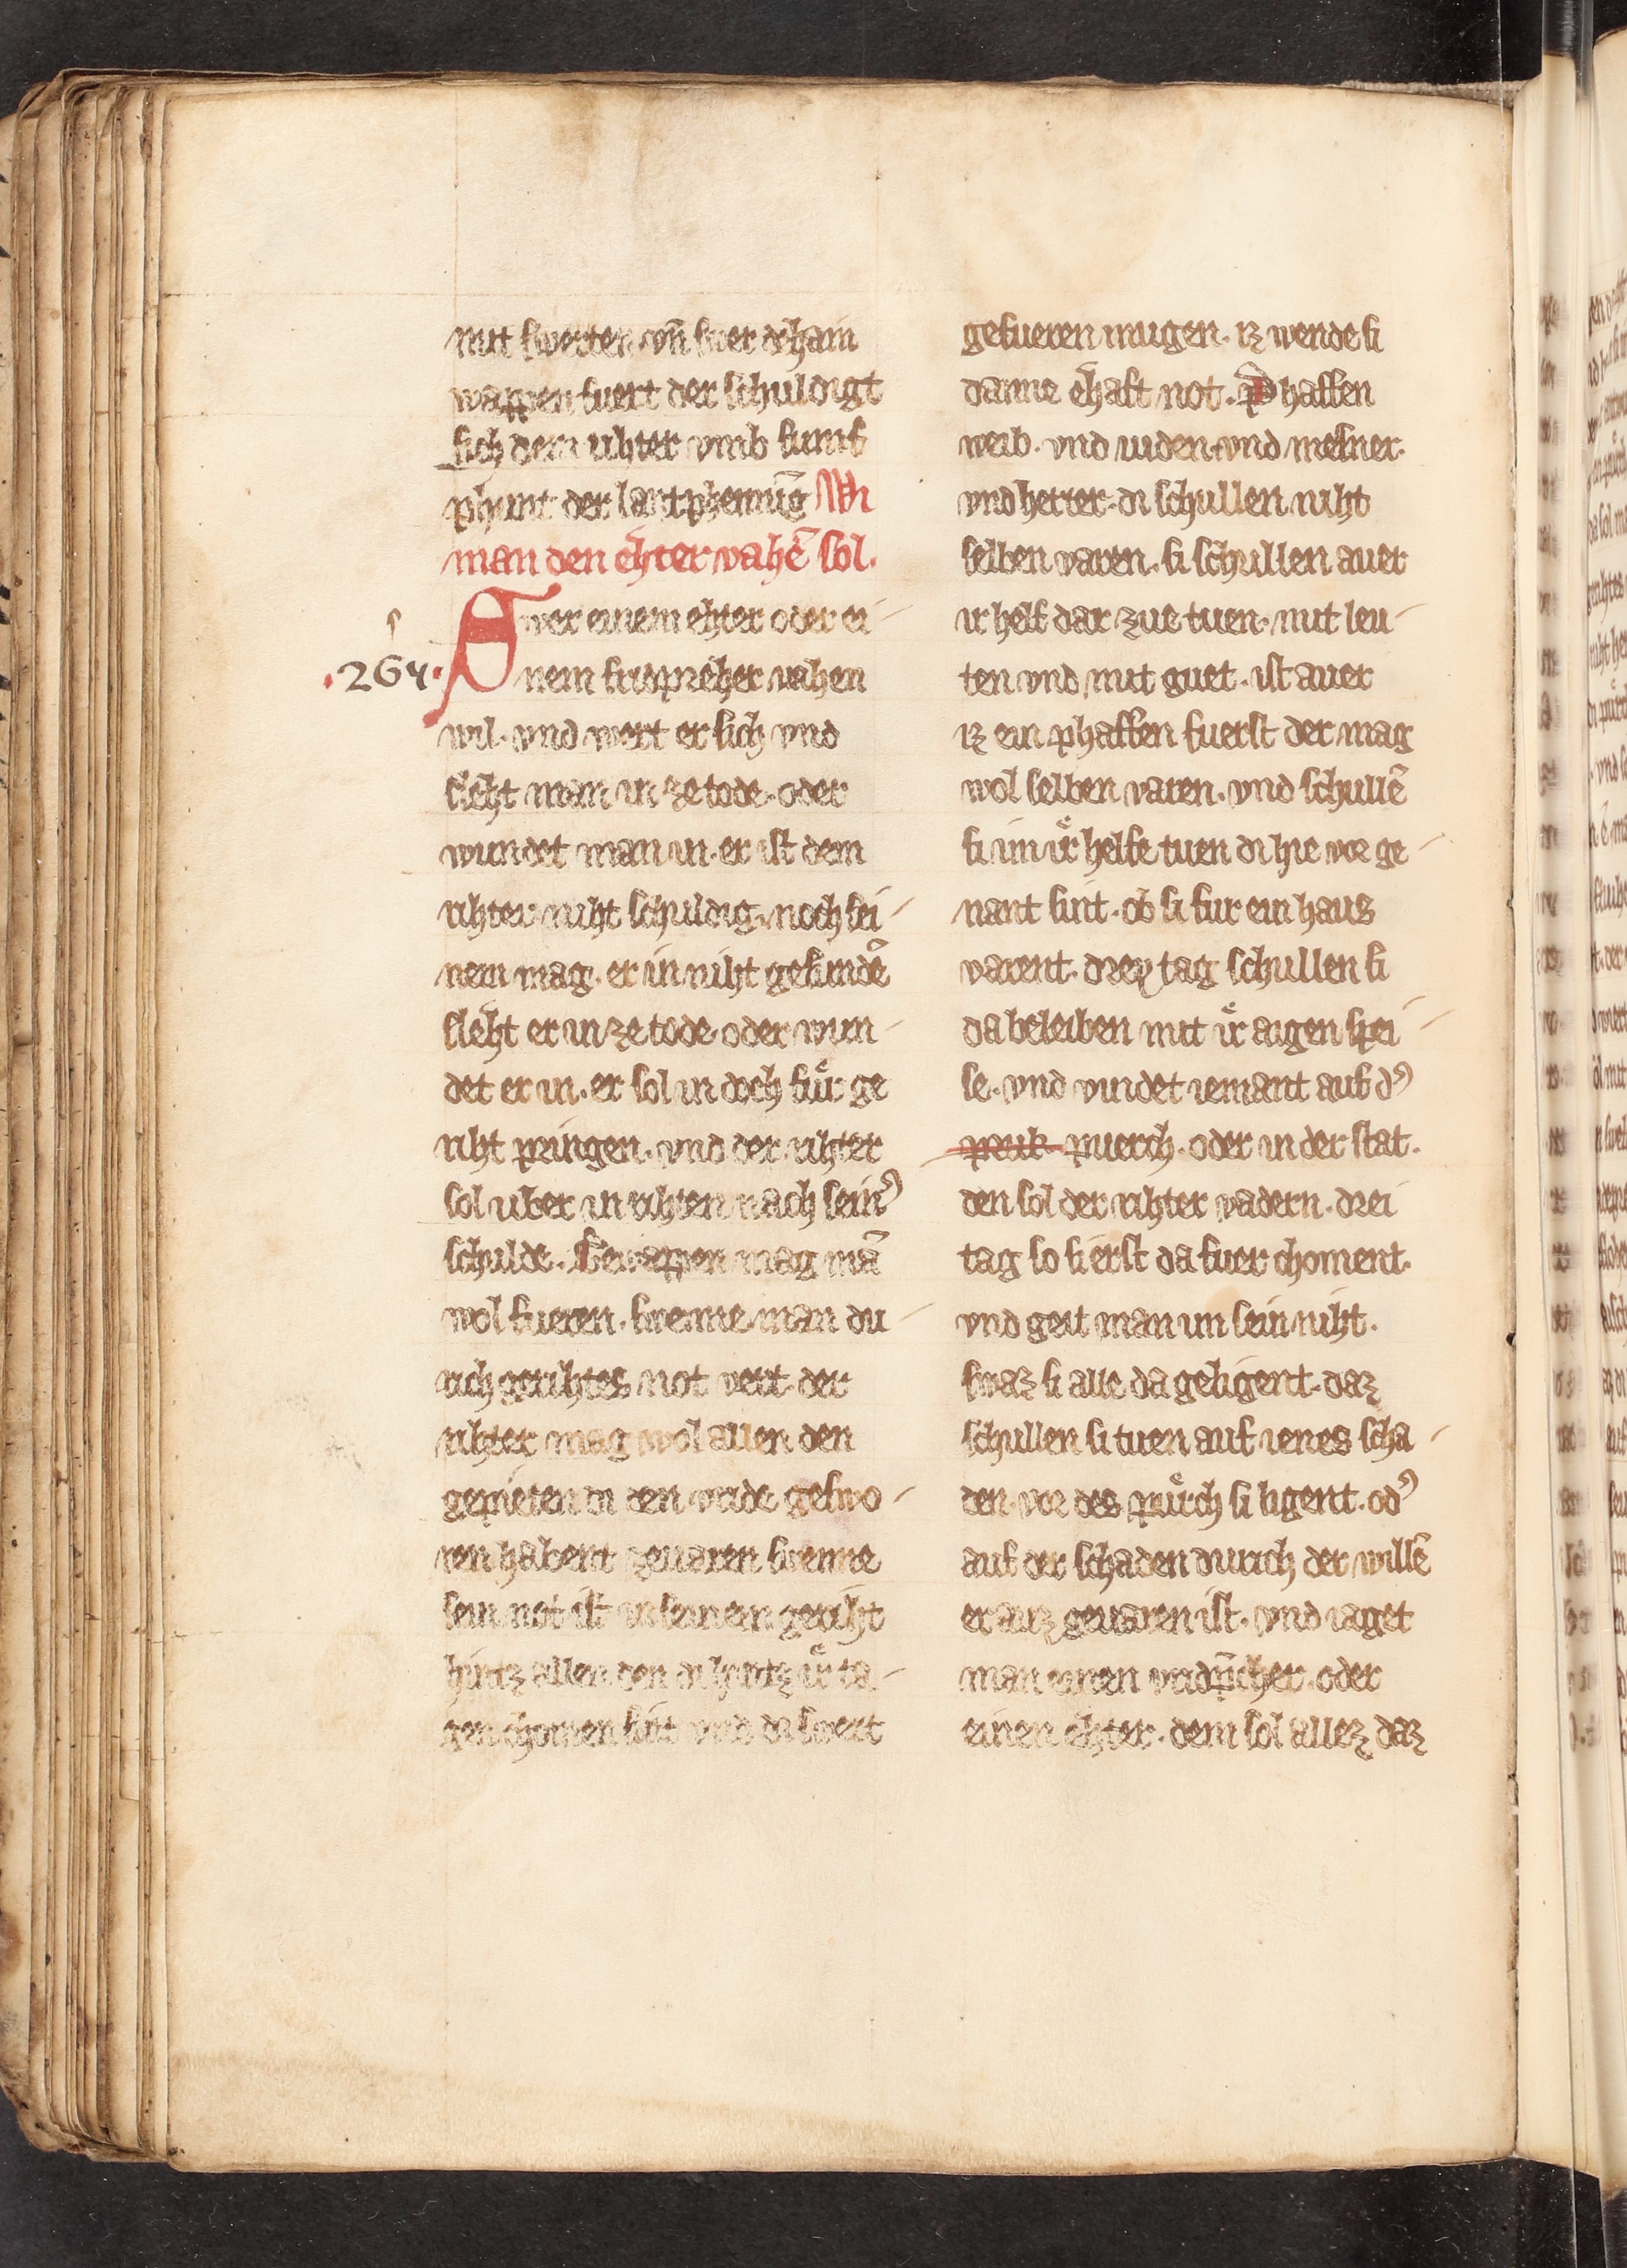 mit swerten vn̄ swer dehain
wappen fuert der schuldigt
sich dem rihter vmb fumf
phunt der lantphennīg Wi
man den ehter vahē sol.
Swer einem ehter oder ei-
.264. nem fridprecher vahen
wil. vnd wert er sich vnd
sleht man in ze tode. oder
wundet man in. er ist dem
rihter niht schuldig. noch sei-
nem mag. er in niht gesundē
sleht er in ze tode. oder wun-
det er in. er sol in doch fuͤr ge
riht pringen. vnd der rihter
sol uber in rihten nach sein᾽
schulde. Gewappen mag mā
wol fueren. swenne man du-
rich gerihtes not vert. der
rihter mag wol allen den
gepieten di den vride geswo-
ren habent zeuaren swenne
sein not ist in seinem geriht
hintz allen den di hintz iͤr ta-
gen chomen sint vnd di swert
gefueren mugen. iz wende si
danne ehaft not. Phaffen
weib. vnd iuden. vnd mesner.
vnd herter. di schullen niht
selben varen. si schullen auer
ir helf dar zue tuen. mit leu-
ten vnd mit guet. ist auer
iz ein phaffen fuerst der mag
wol selben varen. vnd schullē
si im iͤr helfe tuen di hie vor ge-
nant sint. ob si fur ein haus
varent. drey tag schullen si
da beleiben mit iͤr aigen spei-
se. vnd vindet iemant auf d᾽
pruk puerch. oder in der stat.
den sol der rihter vadern. drei
tag so si erst da fuer choment.
vnd geit man im sein niht.
swaz si alle da geligent. daz
schullen si tuen auf ienes scha-
den. vor des puͤrch si ligent. od᾽
auf der schaden durich der willē
er auz geuaren ist. vnd iaget
man einen vridp̄cher. oder
einen ehter. dem sol allez daz